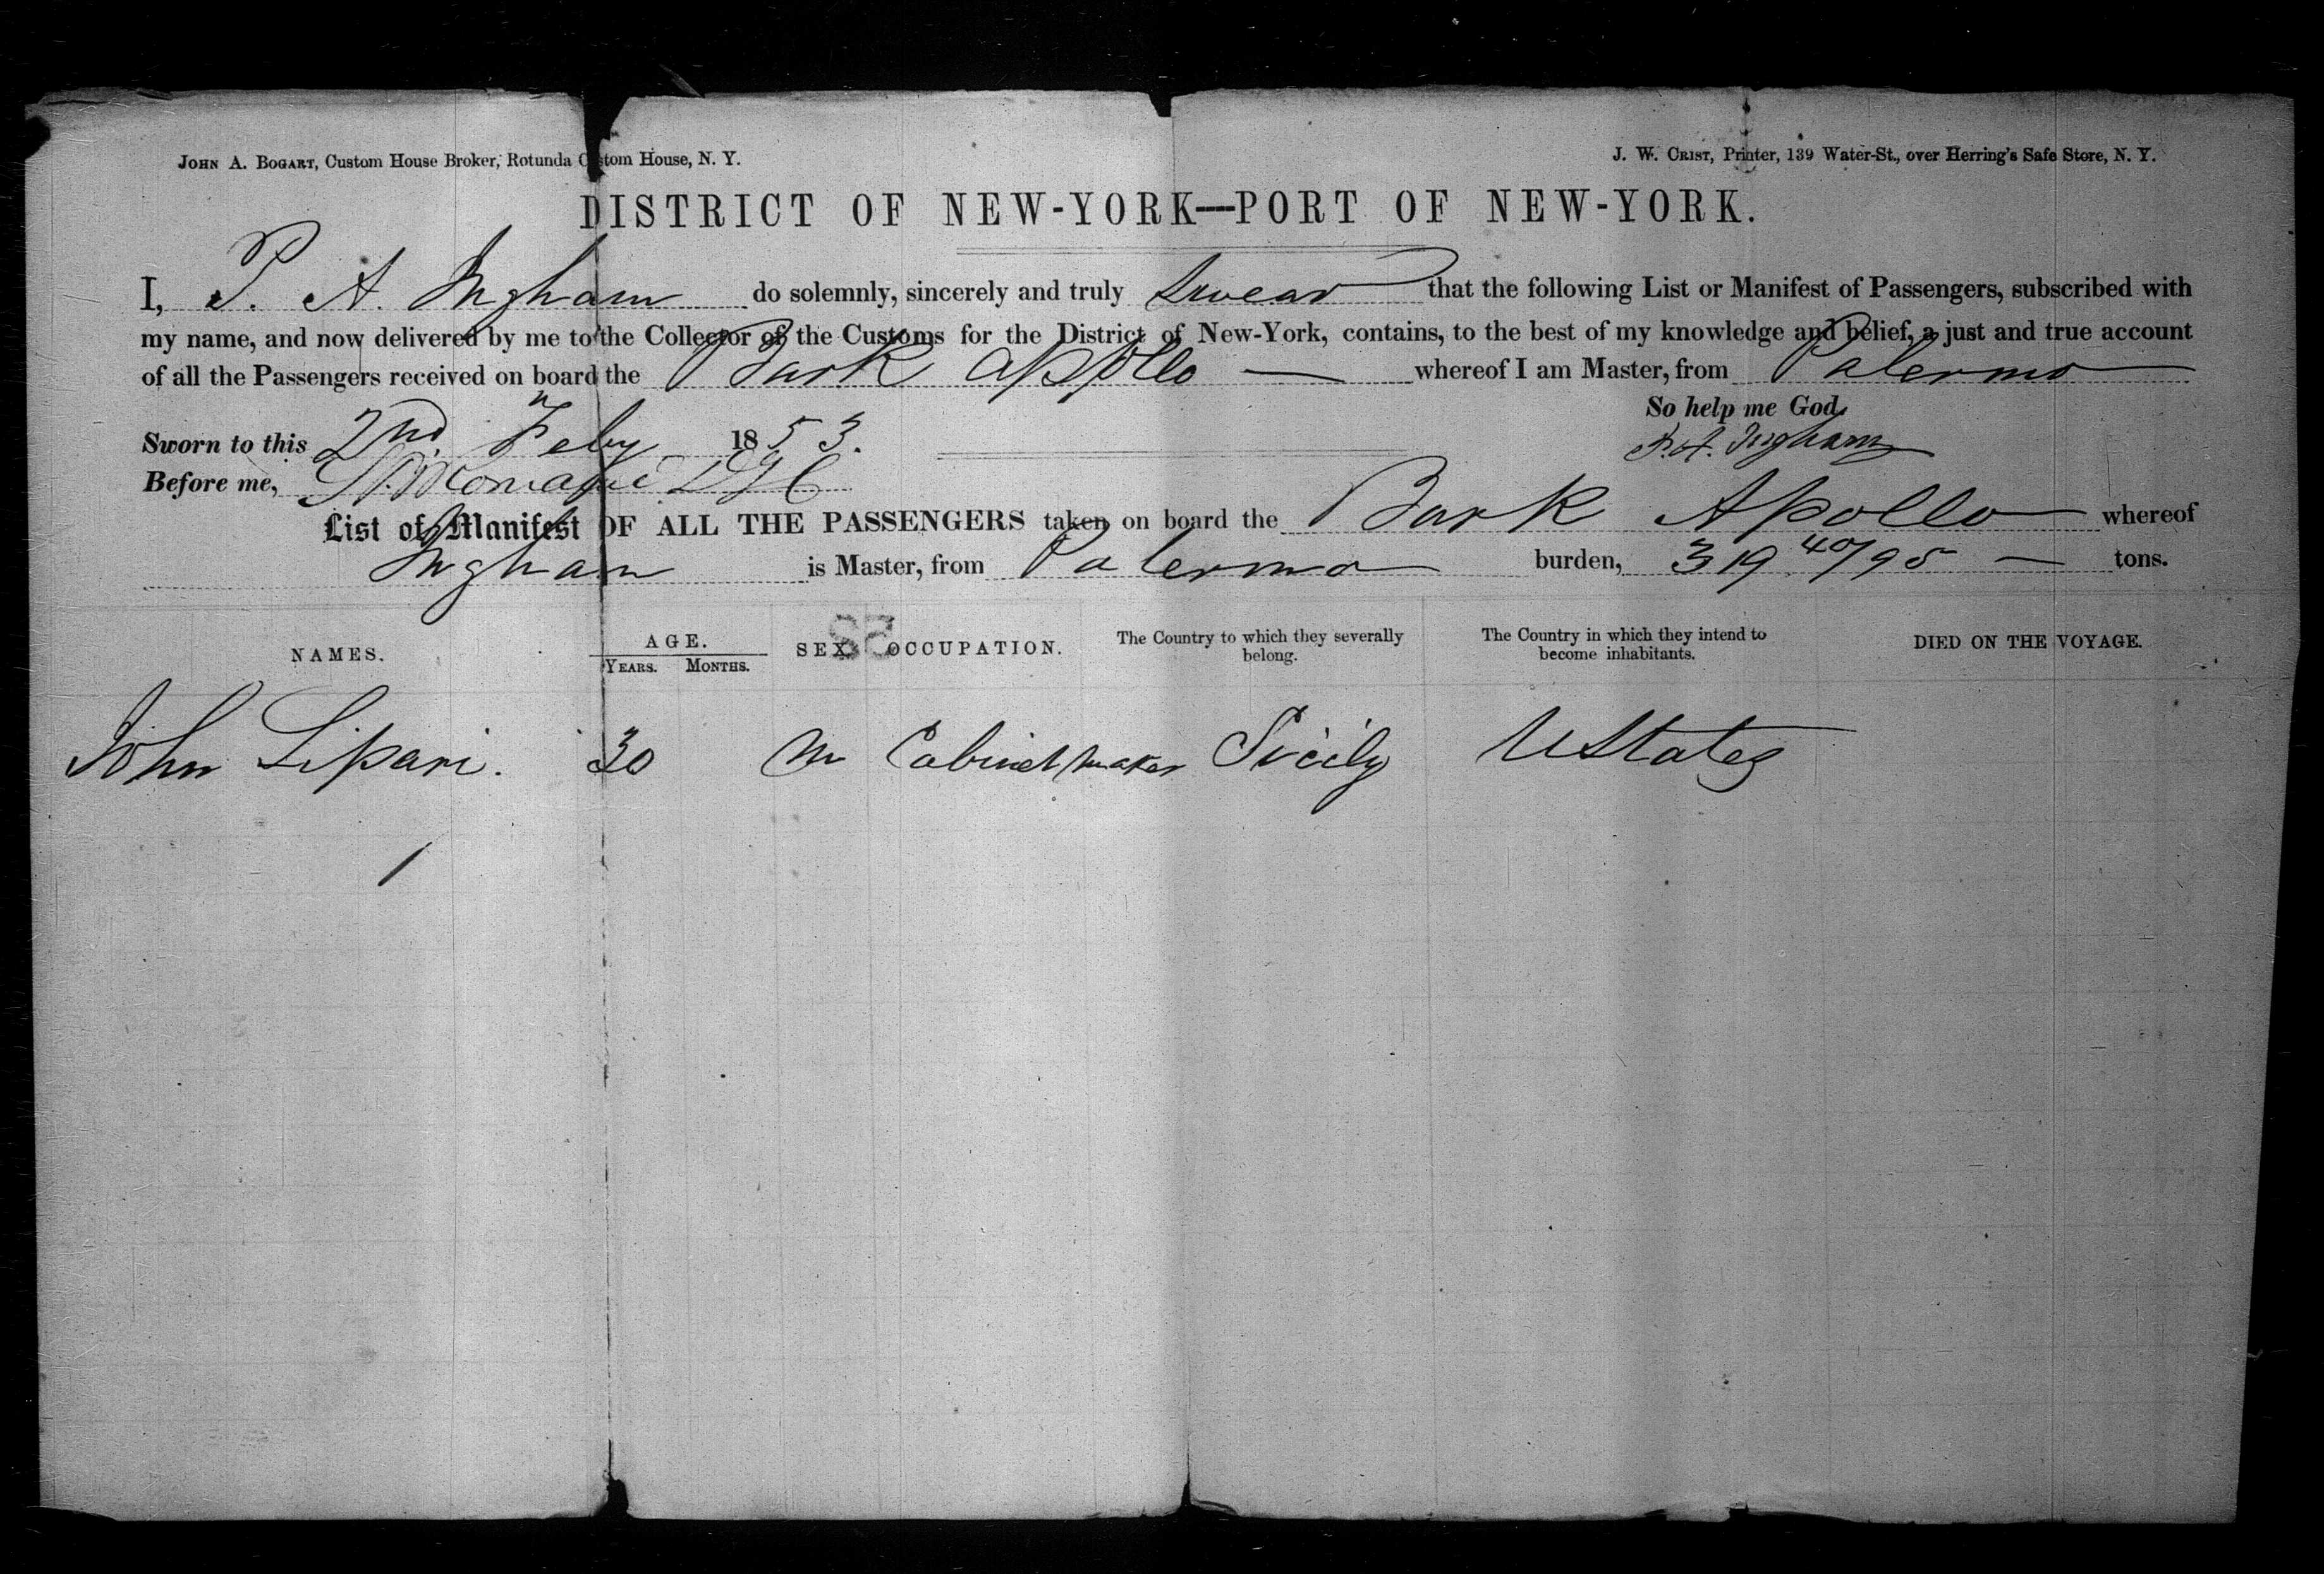 JOHN A. BOGART, Custom House Broker, Rotunda Custom House, N. Y.
J. W. CRIST, Printer, 139 Water-St., over Herring's Safe Store, N. Y.
DISTRICT OF NEW-YORK—PORT OF NEW-YORK.
I, P. A. Ingham do solemnly, sincerely and truly swear that the following List or Manifest of Passengers, subscribed with
my name, and now delivered by me to the Collector of the Customs for the District of New-York, contains, to the best of my knowledge and belief, a just and true account
of all the Passengers received on board the Bark Apollo — whereof I am Master, from Palermo
So help me God,
Sworn to this 2nd. Feby 1853.
P. A. Ingham
Before me,
List of Manifest OF ALL THE PASSENGERS taken on board the Bark Apollo whereof
Ingham is Master, from Palermo burden, 319 40/95 — tons.
NAMES. AGE. YEARS. MONTHS. SEX OCCUPATION. The Country to which they severally belong. The Country in which they intend to become inhabitants. DIED ON THE VOYAGE.
John Lipari. 30 M Cabinet maker Sicily UStates
1